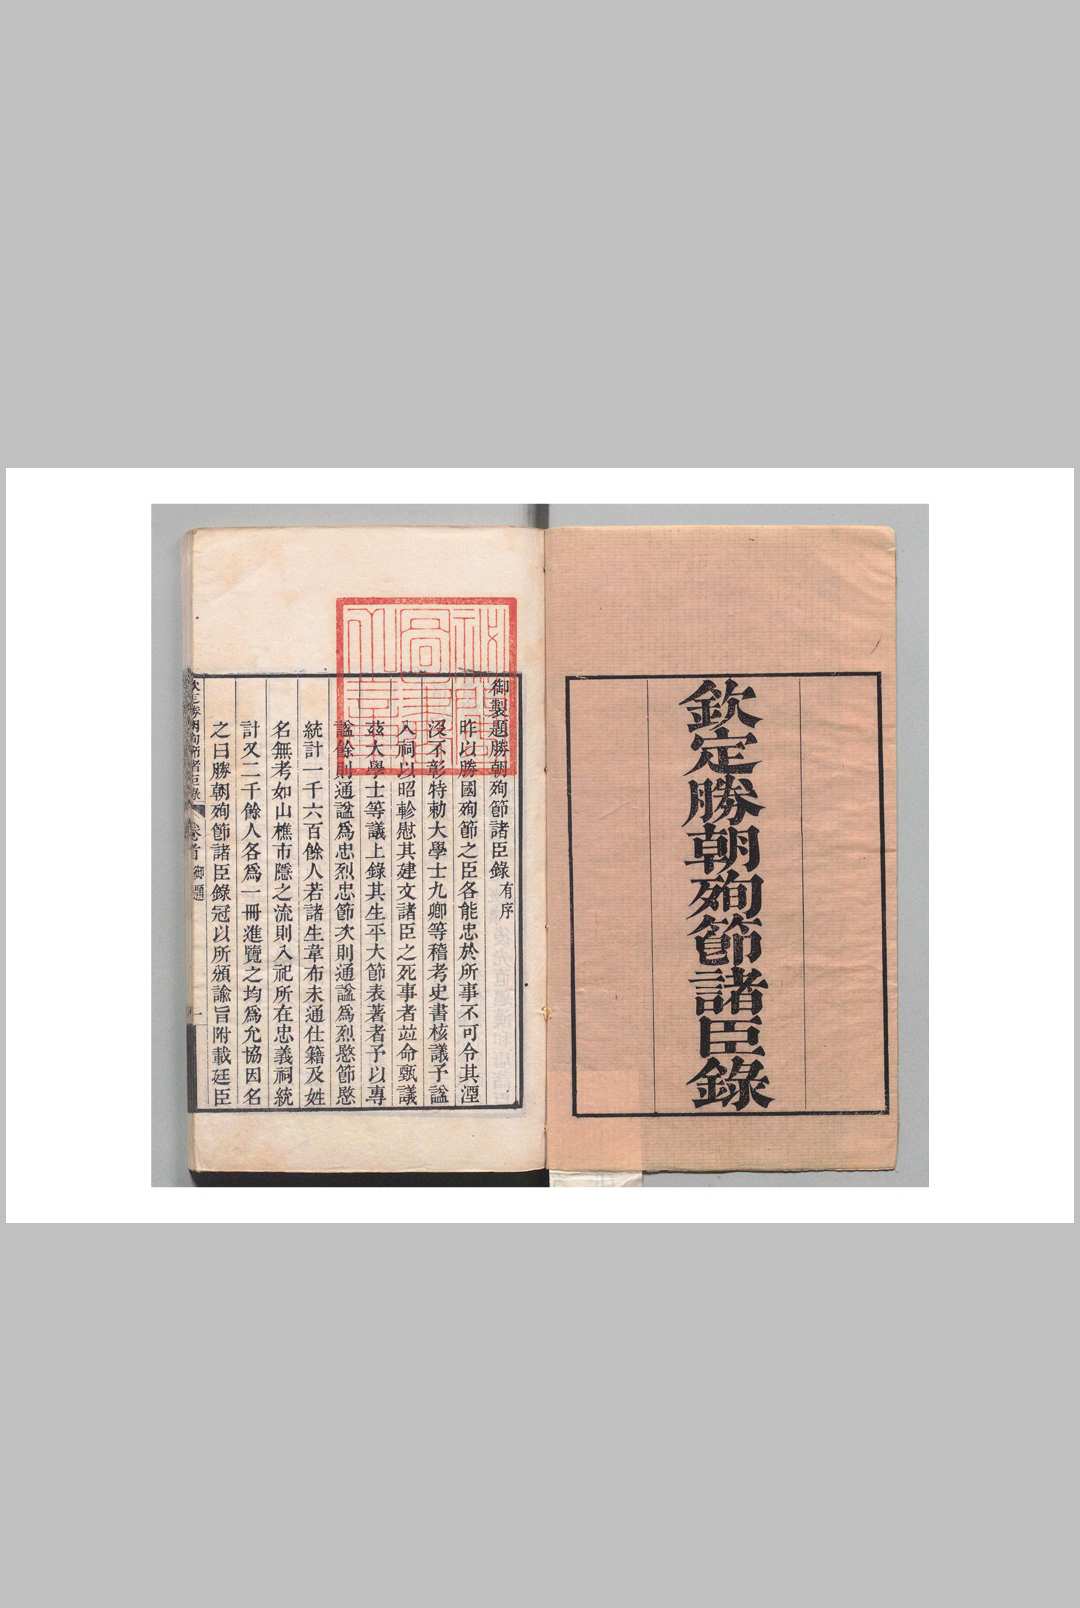 欽定勝朝殉節諸臣錄
御製題勝朝殉節諸臣錄有序
昨以勝國殉節之臣各能忠於所事不可令其湮
沒不彰特勅大學士九卿等稽考史書核議予諡
入祠以昭軫慰其建文諸臣之死事者竝命甄議
茲大學士等議上錄其生平大節表著者予以專
諡餘則通諡爲忠烈忠節次則通諡爲烈愍節愍
統計一千六百餘人若諸生韋布未通仕籍及姓
名無考如山樵市隱之流則入祀所在忠義祠統
計又二千餘人各爲一冊進覽之均爲允協因名
之曰勝朝殉節諸臣錄冠以所頒諭旨附載廷臣
欽定勝朝殉節諸臣錄 卷首 御題 一